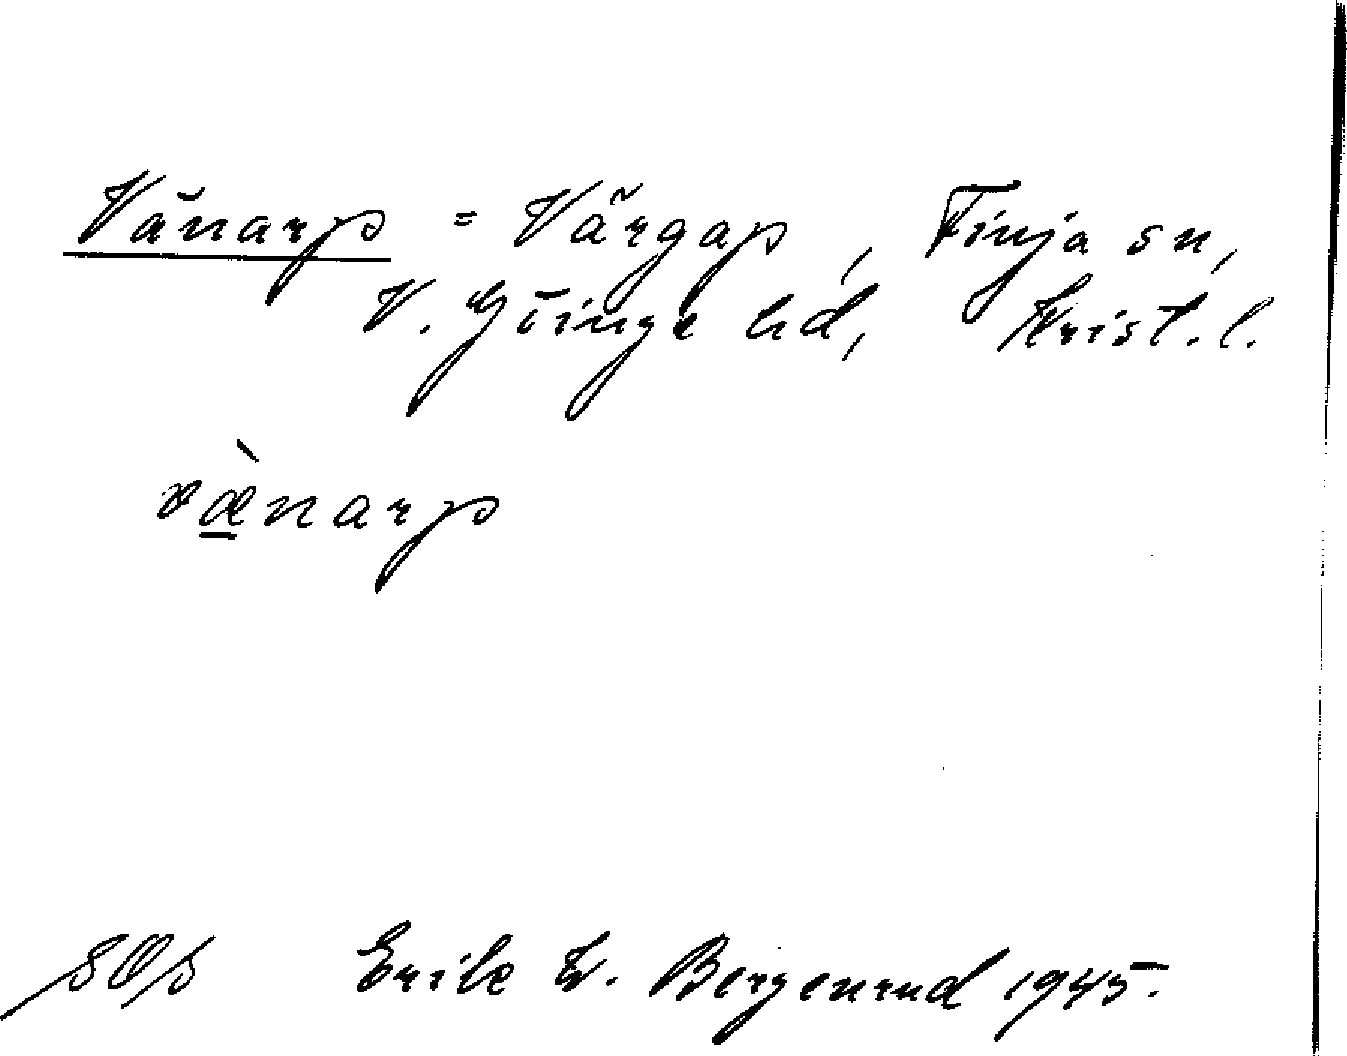 Vänarp = Värgap, Finja sn,
V. Göinge hd, Krist. l.
væ̠̀narp
SOs Erik W. Bergenrud 1945.